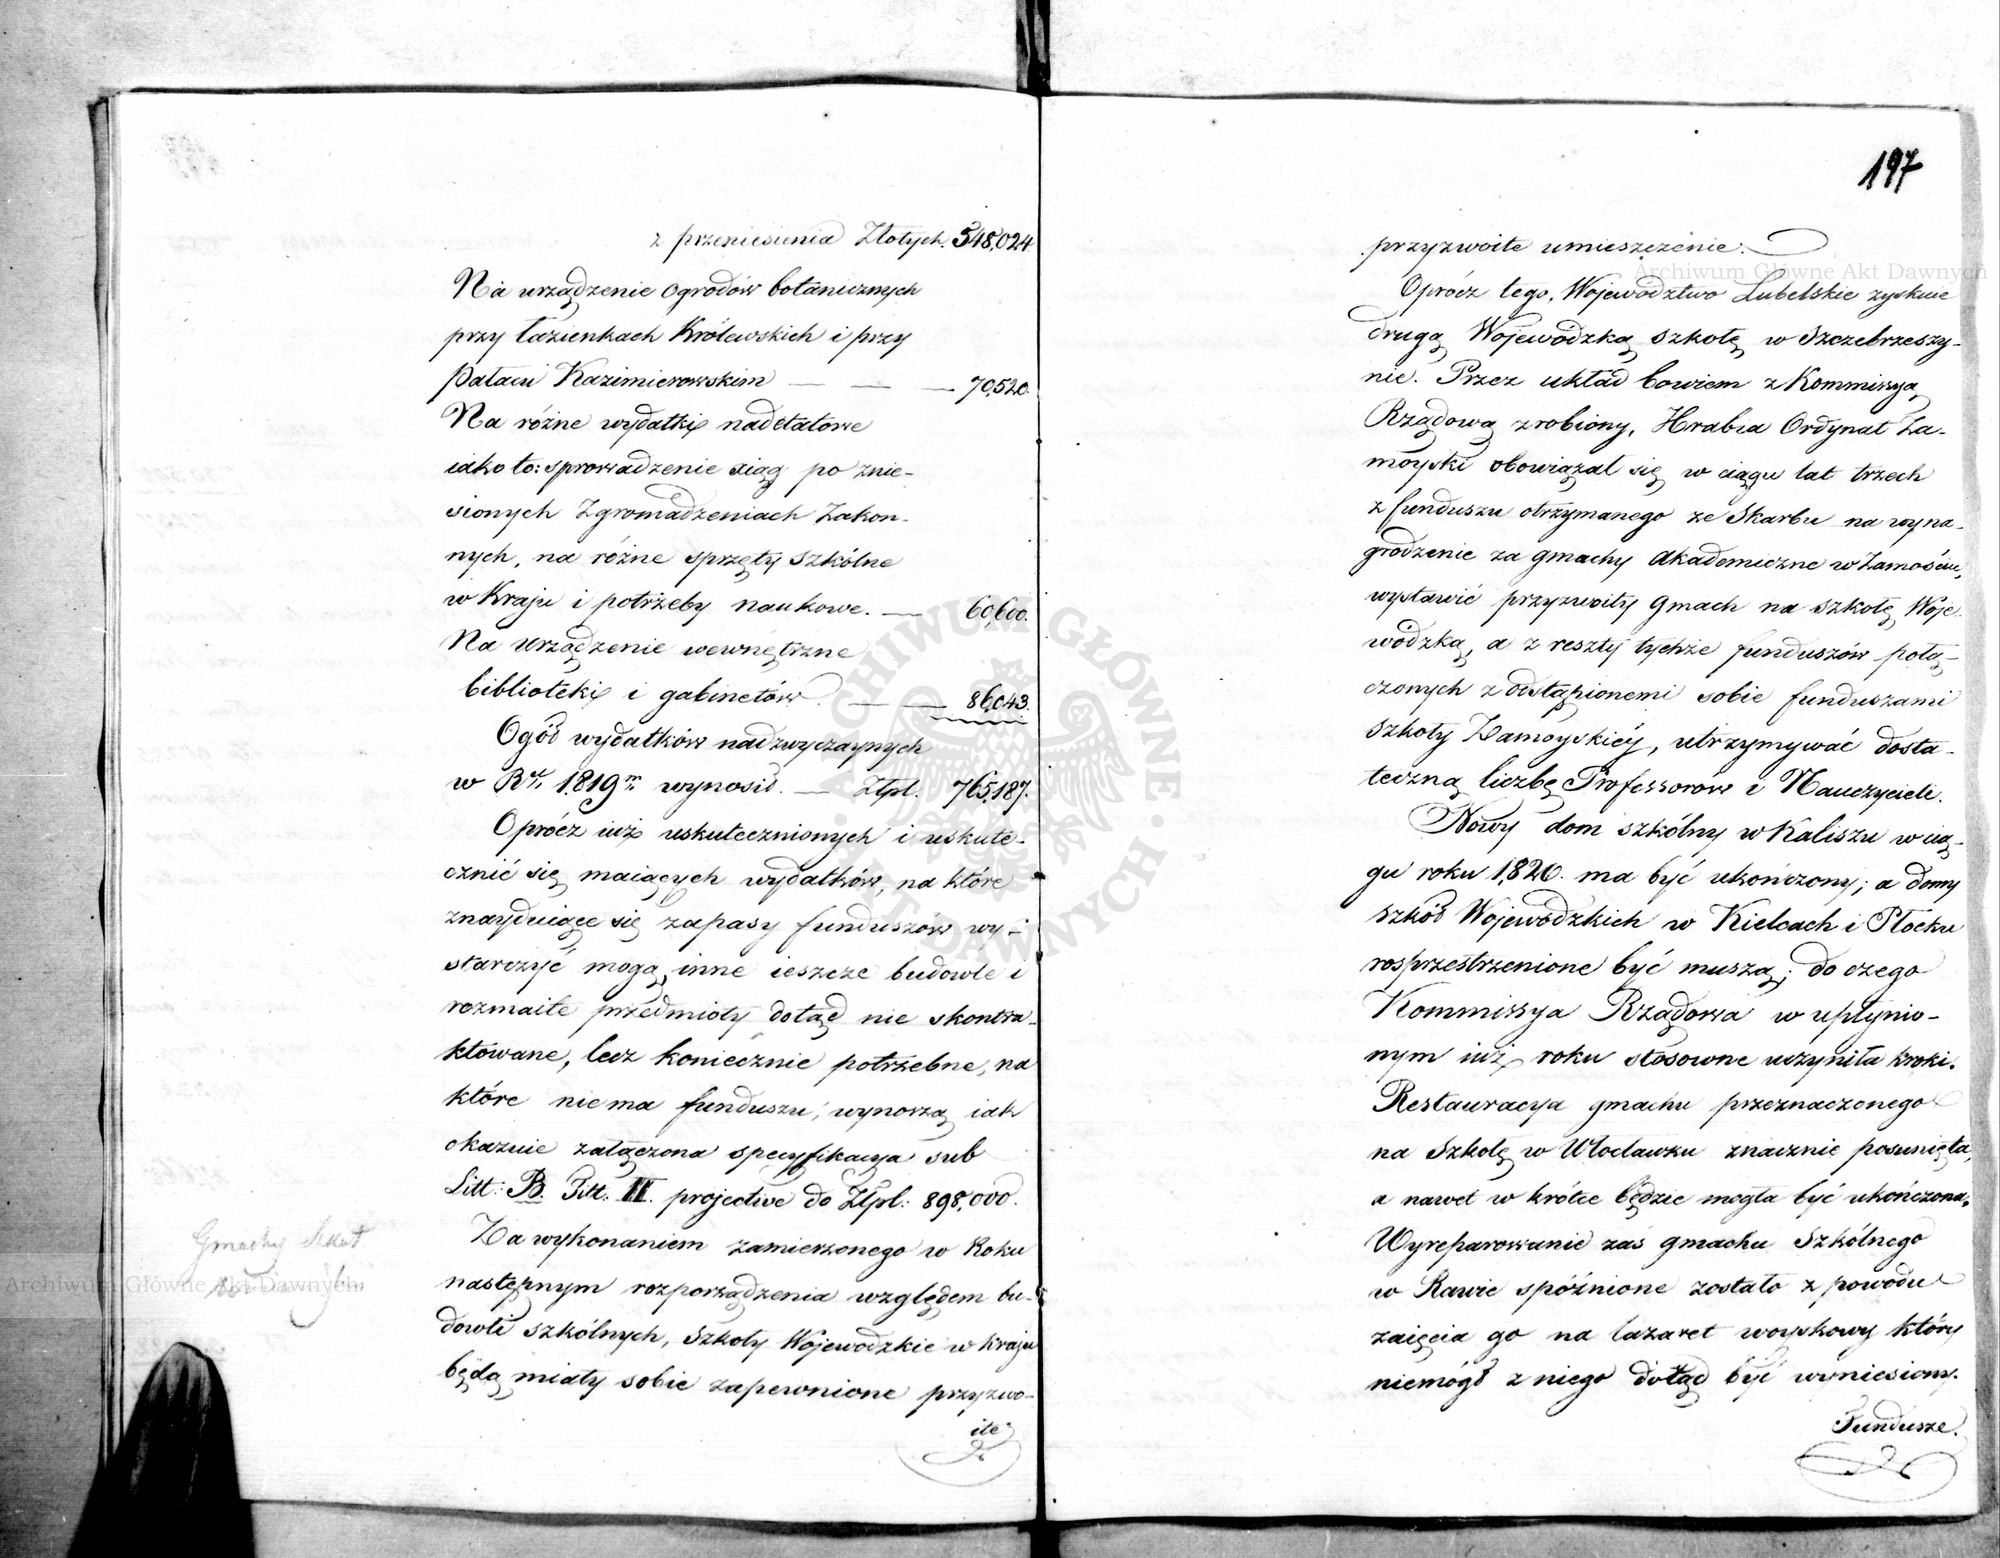 z przeniesienia Złotych. 548,024
Na urządzenie ogrodów botanicznych
przy Łazienkach Królewskich i przy
Pałacu Kazimierowskim — — — 70,520.
Na różne wydatki nadetatowe
iako to: sprowadzenie xiąg po znie-
sionych Zgromadzeniach Zakon-
nych, na różne sprzęty szkólne
w Kraju i potrzeby naukowe. — 60,600.
Na urządzenie wewnętrzne
biblioteki i gabinetów. — — 86,043.
Ogół wydatków nadzwyczaynych
w Rku 1819m wynosił. — Złpl. 765,187.
Oprócz iuż uskutecznionych i uskute-
cznić się maiących wydatków, na które
znayduiące się zapasy funduszów wy-
starczyć mogą, inne ieszcze budowle i
rozmaite przedmioty dotąd nie skontra-
ktowane, lecz koniecznie potrzebne, na
które niema funduszu, wynoszą iak
okazuie załączona specyfikacya sub
Litt: B. Titt. II. projective do Złpl: 898,000.
Za wykonaniem zamierzonego w Roku
następnym rozporządzenia względem bu-
dowli szkólnych, Szkoły Wojewodzkie w kraju
będą miały sobie zapewnione przyzwo-
ite
Gmachy Szkół
197
przyzwoite umieszczenie.
Oprócz tego, Województwo Lubelskie zyskuie
drugą Wojewódzką szkołę w Szczebrzeszy-
nie. Przez układ bowiem z Kommissyą
Rządową zrobiony, Hrabia Ordynat Za-
moyski obowiązał się w ciągu lat trzech
z funduszu otrzymanego ze Skarbu na wyna-
grodzenie za gmachy Akademiczne w Zamościu,
wystawić przyzwoity gmach na szkołę Woje-
wódzką, a z reszty tychże funduszów połą-
czonych z odstąpionemi sobie funduszami
szkoły Zamoyskiéy, utrzymywać dosta-
teczną liczbę Professorów i Nauczycieli.
Nowy dom szkólny w Kaliszu w cią-
gu roku 1,820. ma być ukończony; a domy
szkół Wojewódzkich w Kielcach i Płocku
rosprzestrzenione być muszą; do czego
Kommissya Rządowa w upłynio-
nym iuż roku stosowne uczyniła kroki.
Restauracya gmachu przeznaczonego
na Szkołę w Włocławku znacznie posunięta,
a nawet w krótce będzie mogła być ukończona.
Wyreparowanie zaś gmachu Szkólnego
w Rawie spóźnione zostało z powodu
zaięcia go na lazaret woyskowy który
niemógł z niego dotąd być wyniesiony.
Fundusze.
Archiwum Główne Akt Dawnych
Archiwum Główne Akt Dawnych
ARCHIWUM GŁÓWNE AKT DAWNYCH